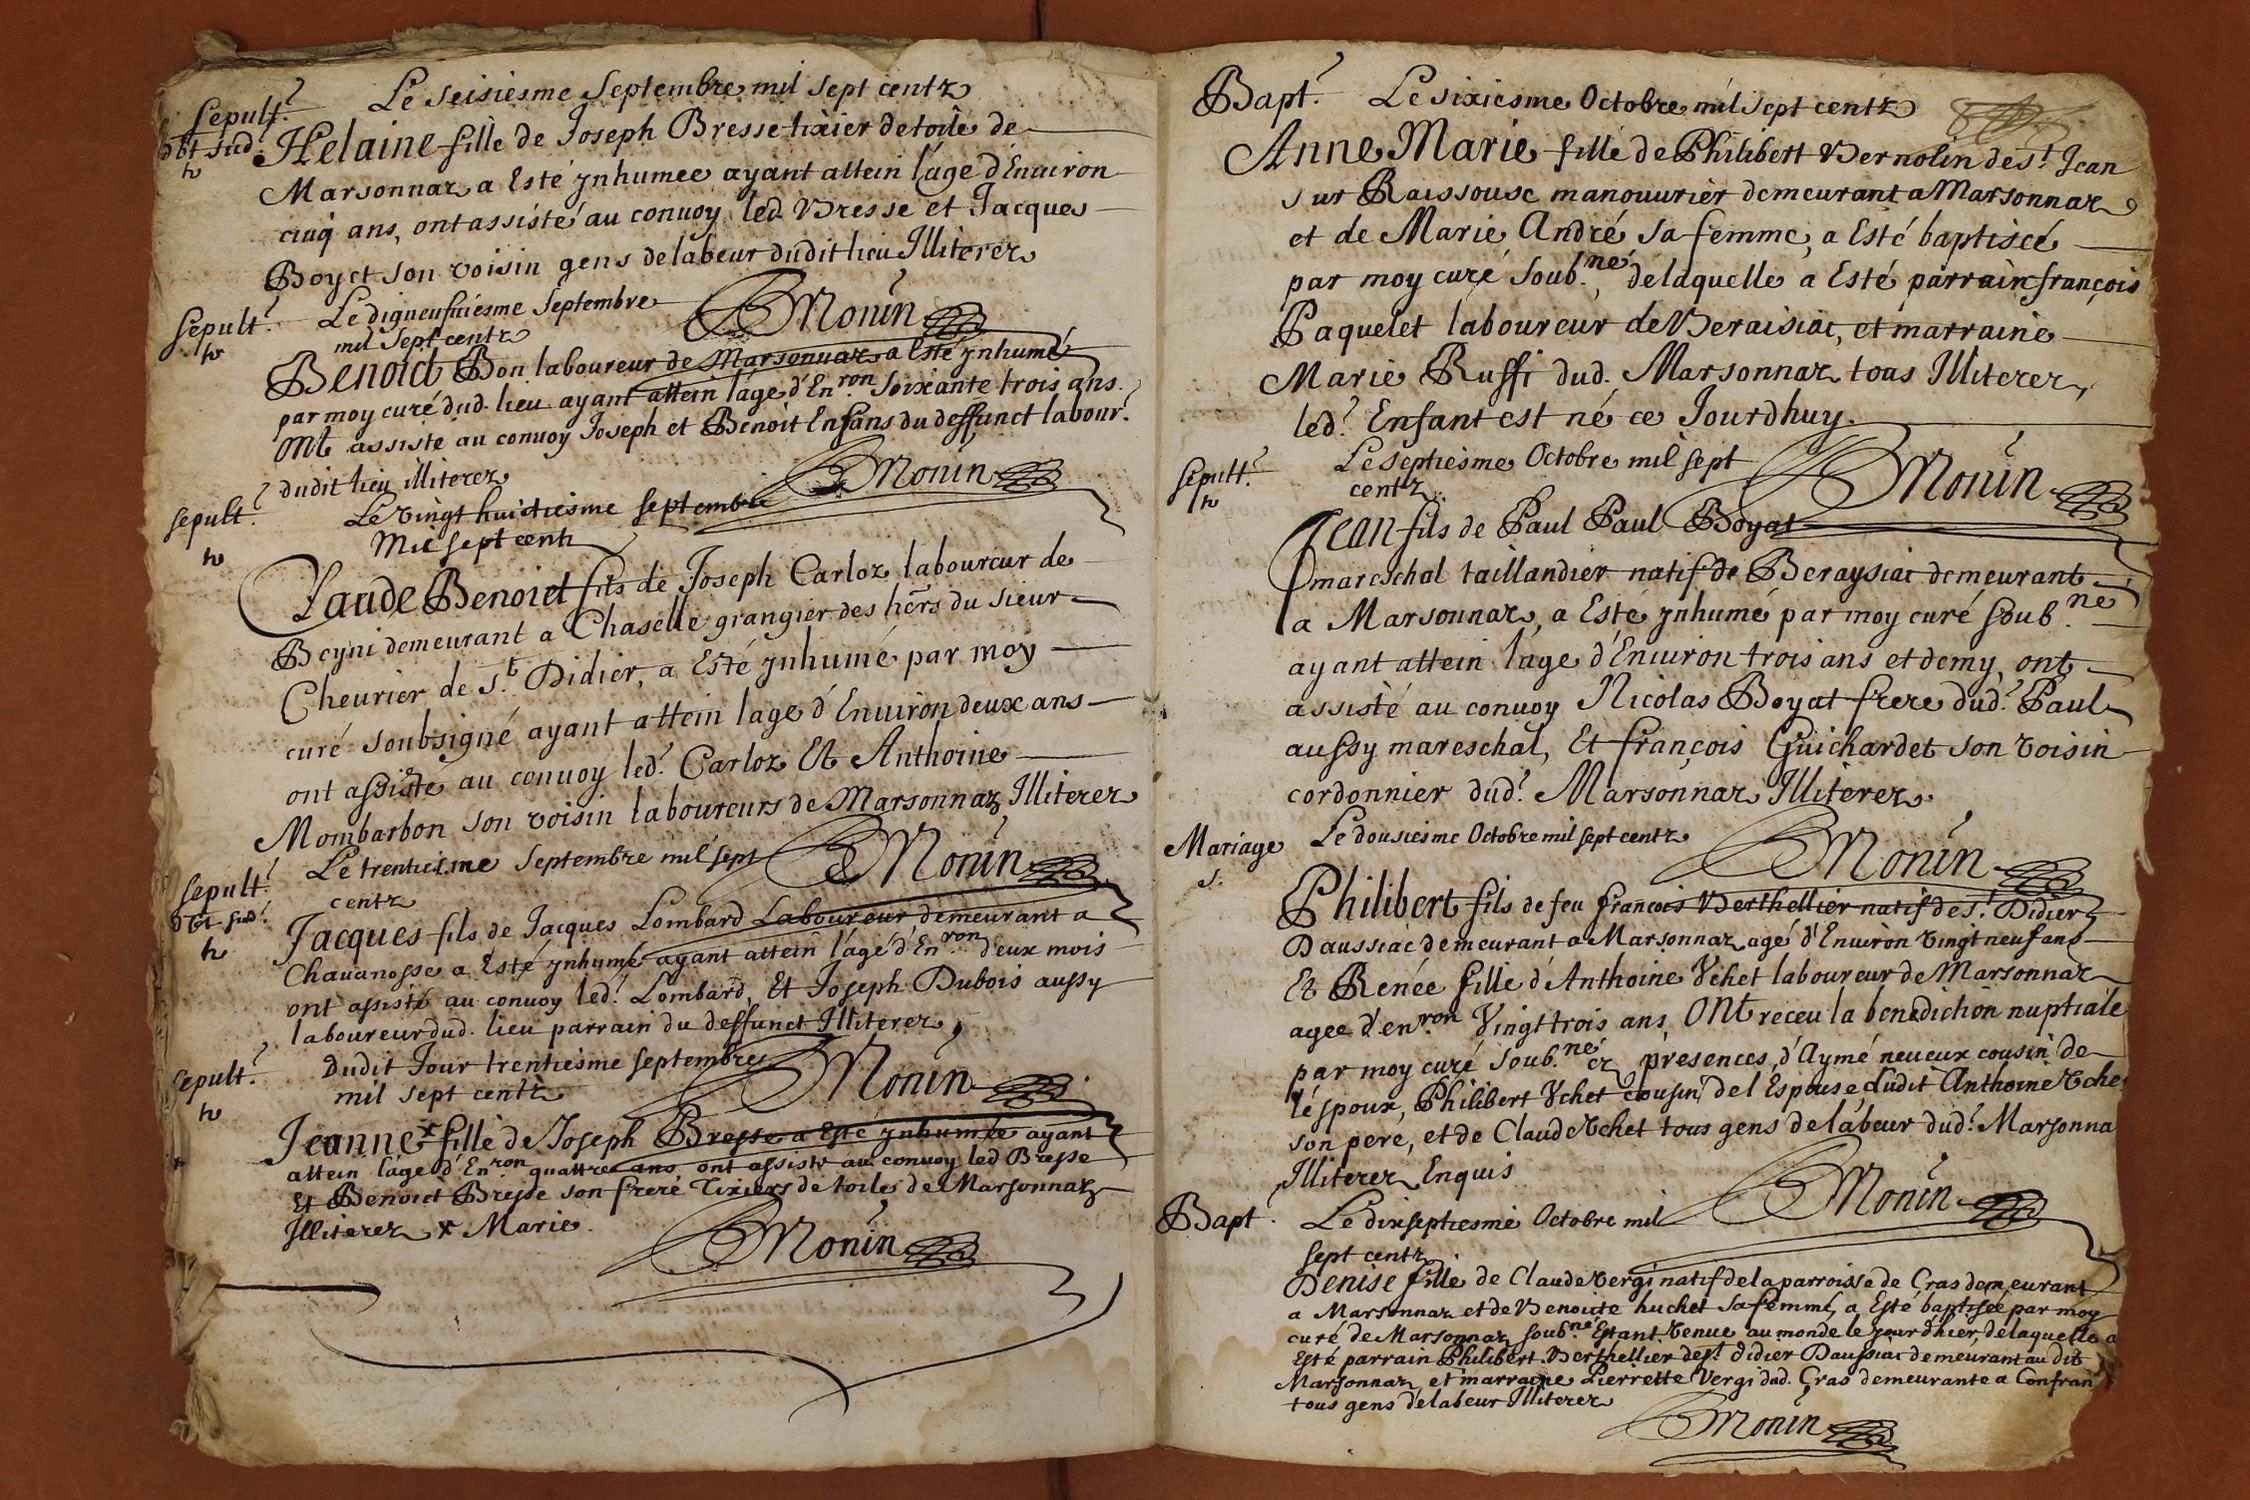 Sepult.e Le seisiesme Septembre mil sept centz
Helaine fille de Joseph Bresse tixier de toile de
Marsonnaz a Esté ynhumee ayant attein l'age d'Enuiron
cinq ans, ont assisté au conuoy led. Bresse et Jacques
Boyet son voisin gens de labeur dudit lieu Illiterez
Monin
Sepult.e Le digneufuiesme Septembre
mil sept centz
Benoict Bon laboureur de Marsonnaz a Esté ynhumé
par moy curé dud. lieu ayant attein l'age d'En.ron soixante trois ans.
Ont assisté au conuoy Joseph et Benoit Enfans du deffunct labour.s
dudit lieu illiterez
Monin
Sepult.e Le vingt huictiesme septembre
Mil sept centz
Claude Benoict fils de Joseph Carloz laboureur de
Beyni demeurant a Chaselle grangier des hers du sieur
Cheurier de St Didier, a Esté ynhumé par moy
curé soubsigné ayant attein lage d'Enuiron deux ans
ont assisté au conuoy led.t Carloz Et Anthoine
Mombarbon son voisin laboureurs de Marsonnaz Illiterez
Monin
Sepult.e Le trentiesme Septembre mil sept
centz
Jacques fils de Jacques Lombard Laboureur demeurant a
Chauanosse a Esté ynhumé ayant attein l'agé d'En.ron deux mois
ont assisté au conuoy led.t Lombard, Et Joseph Dubois aussy
laboureur dud. lieu parrain du deffunct Illiterez
Monin
Sepult.e Dudit Jour trentiesme septembre
mil sept centz
Jeanne x fille de Joseph Bresse a Esté ynhumée ayant
attein l'age d'En.ron quattre ans ont assisté au conuoy led Bresse
Et Benoict Bresse son frere Tixiers de toile de Marsonnaz
Illiterez x Marie
Monin
Bapt.e Le sixiesme Octobre mil sept centz
Anne Marie fille de Philibert Bernolin de St Jean
sur Raissouse manouurier demeurant a Marsonnaz
et de Marie André sa femme, a Esté baptisée
par moy curé soub.né, de laquelle a Esté parrain françois
Paquelet laboureur de Beraisiac, et marraine
Marie Ruffi dud. Marsonnaz tous Illiterez,
led.t Enfant est né ce Jourdhuy.
Monin
Sepult.e Le septiesme Octobre mil sept
centz
Jean fils de Paul Paul Boyat
mareschal taillandier natif de Beraysiac demeurant
a Marsonnaz, a Esté ynhumé par moy curé soub.né
ayant attein lage d'Enuiron trois ans et demy, ont
assisté au conuoy Nicolas Boyat frere dud.t Paul
aussy mareschal, Et françois Guichardet son voisin
cordonnier dud.t Marsonnaz Illiterez.
Monin
Mariage Le dousiesme Octobre mil sept centz
Philibert fils de feu françois Berthellier natif de St Didier
Daussiac demeurant a Marsonnaz agé d'Enuiron vingt neuf ans
Et Renée fille d'Anthoine Vchet laboureur de Marsonnaz
agee d'en.ron Vingt trois ans, Ont receu la benediction nuptiale
par moy curé soub.né ez presences, d'Aymé neueux cousin de
léspoux, Philibert Vchet cousin de l Espouse, dudit Anthoine Vche
son pere, et de Claude Vchet tous gens de labeur dud.t Marsonna
Illiterez Enquis
Monin
Bapt. Le dixseptiesme Octobre mil
sept centz
Denise fille de Claude Vergi natif de la parroisse de Cras demeurant
a Marsonnaz et de Benoicte huchet sa femme, a Esté baptisée par moy
curé de Marsonnaz soub.né Estant Venue au monde le jour dhier, de laquelle a
Esté parrain Philibert Berthellier de St didier Daussiac demeurant au dit
Marsonnaz et marraine Pierrette Vergi dud. Cras demeurante a Confran
tous gens de labeur Illiterez
Monin